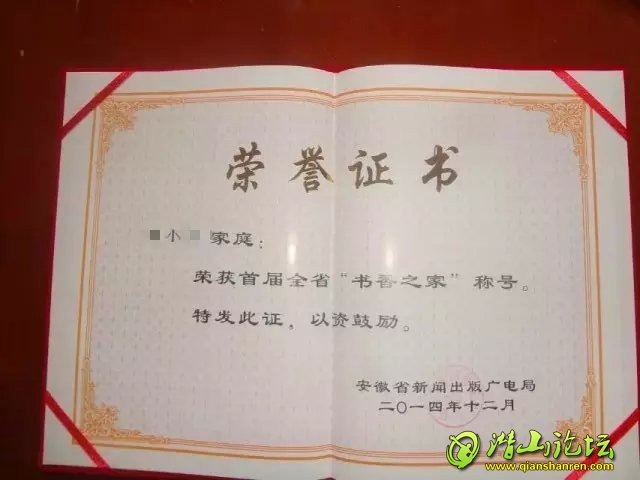 荣誉证书
小 家庭：
荣获首届全省“书香之家”称号。
特发此证，以资鼓励。
安徽省新闻出版广电局
二〇一四年十二月
潜山论坛
www.qianshanren.com